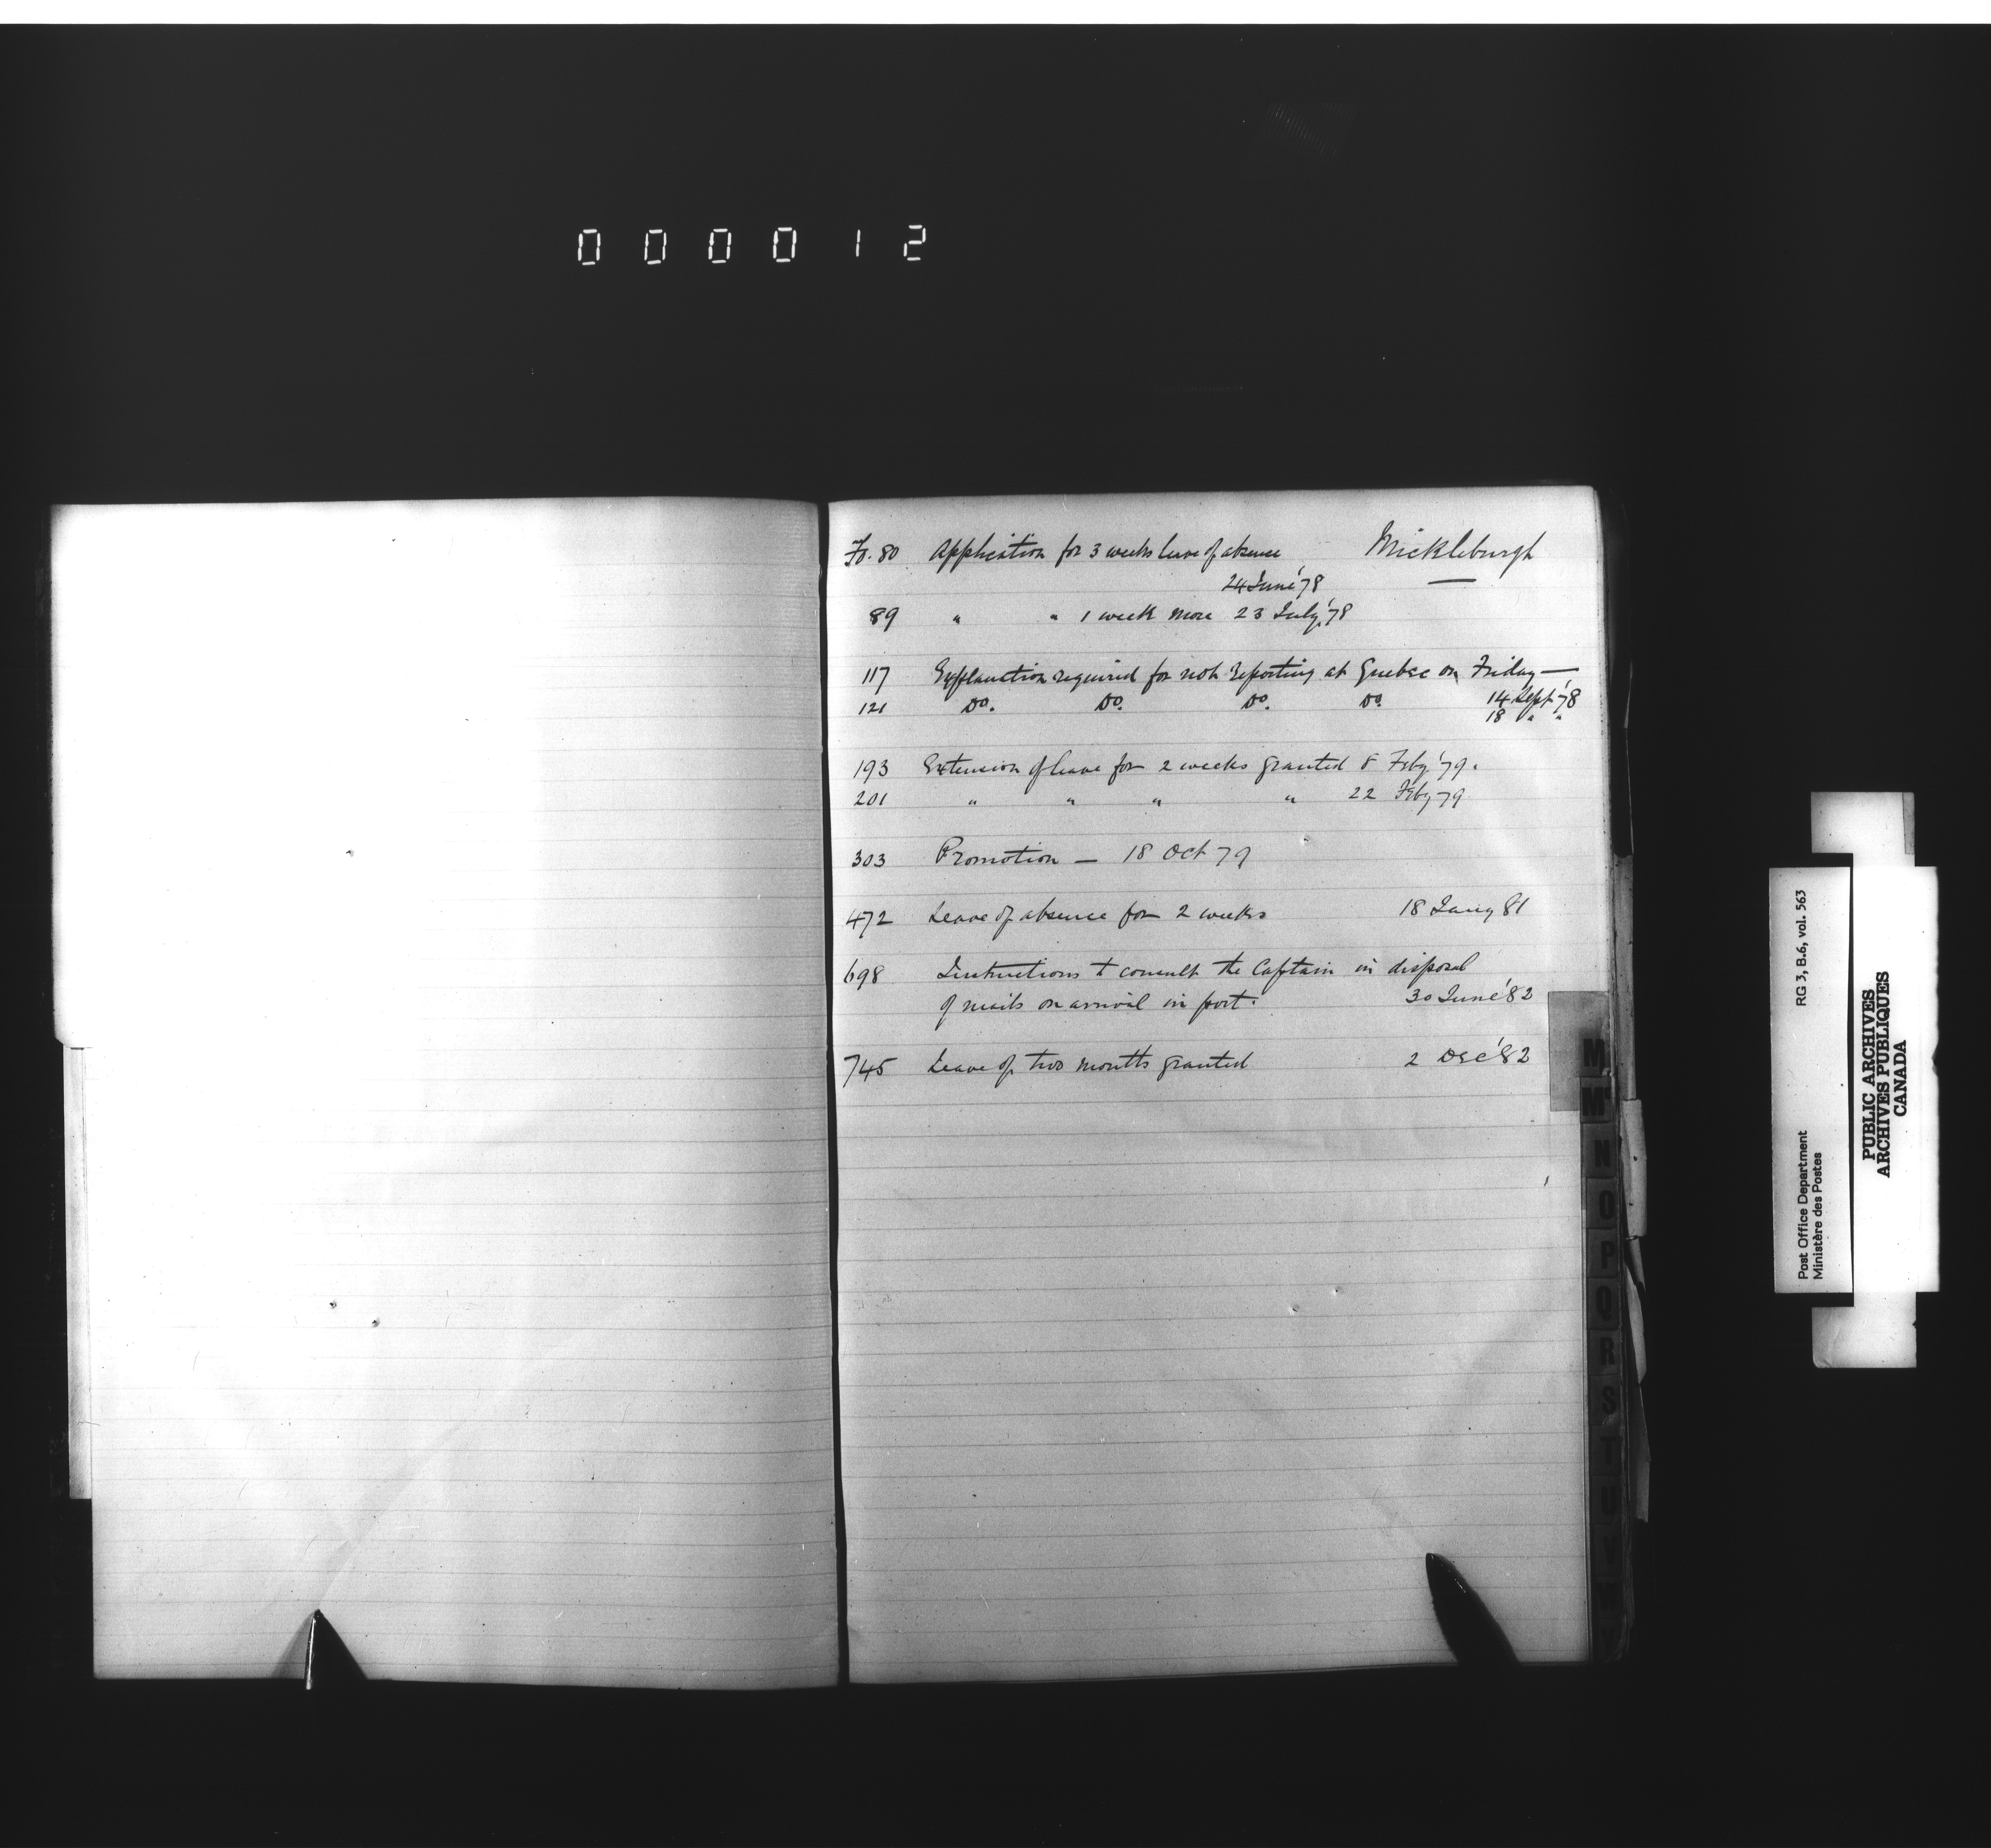 000012
Fo. 80 Application for 3 weeks leave of absence Mickleburgh
24 June '78
89 " " 1 week more 23 July '78
117 Explanation required for not reporting at Quebec on Friday —
14 Sept '78
121 Do. Do. Do. Do.
18 " "
193 Extension of leave for 2 weeks granted 8 Feby '79.
201 " " " " 22 Feby 79
303 Promotion — 18 Oct 79
472 Leave of absence for 2 weeks 18 Jany 81
698 Instructions to consult the Captain in disposal
of mails on arrival in port. 30 June '82
745 Leave of two months granted 2 Dec '82
M
M
N
O
P
Q
R
S
T
U
Post Office Department RG 3, B.6, vol. 563
Ministère des Postes
PUBLIC ARCHIVES
ARCHIVES PUBLIQUES
CANADA